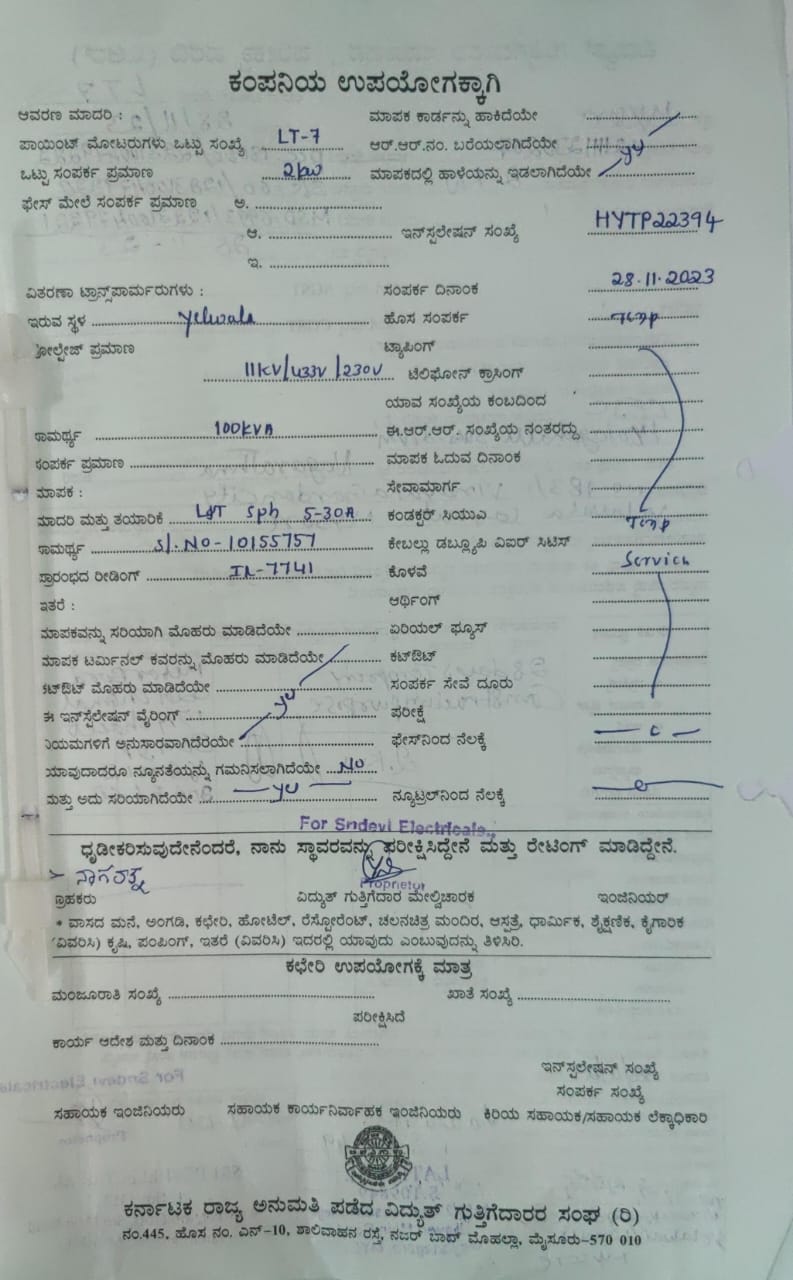 ಕಂಪನಿಯ ಉಪಯೋಗಕ್ಕಾಗಿ
ಆವರಣ ಮಾದರಿ : ಮಾಪಕ ಕಾರ್ಡನ್ನು ಹಾಕಿದೆಯೇ
ಪಾಯಿಂಟ್ ಮೋಟರುಗಳು ಒಟ್ಟು ಸಂಖ್ಯೆ LT-7 ಆರ್.ಆರ್.ನಂ. ಬರೆಯಲಾಗಿದೆಯೇ
ಒಟ್ಟು ಸಂಪರ್ಕ ಪ್ರಮಾಣ 2kw ಮಾಪಕದಲ್ಲಿ ಹಾಳೆಯನ್ನು ಇಡಲಾಗಿದೆಯೇ
ಫೇಸ್ ಮೇಲೆ ಸಂಪರ್ಕ ಪ್ರಮಾಣ ಅ.
ಆ. ಇನ್‌ಸ್ಟಲೇಷನ್ ಸಂಖ್ಯೆ HYTP22394
ಇ.
ವಿತರಣಾ ಟ್ರಾನ್ಸ್‌ಫಾರ್ಮರುಗಳು : ಸಂಪರ್ಕ ದಿನಾಂಕ 28.11.2023
ಇರುವ ಸ್ಥಳ Yelwala ಹೊಸ ಸಂಪರ್ಕ Temp
ವೋಲ್ಟೇಜ್ ಪ್ರಮಾಣ ಟ್ಯಾಪಿಂಗ್
11KV/433V/230V ಟೆಲಿಫೋನ್ ಕ್ರಾಸಿಂಗ್
ಯಾವ ಸಂಖ್ಯೆಯ ಕಂಬದಿಂದ
ಸಾಮರ್ಥ್ಯ 100KVA ಈ.ಆರ್.ಆರ್. ಸಂಖ್ಯೆಯ ನಂತರದ್ದು
ಸಂಪರ್ಕ ಪ್ರಮಾಣ ಮಾಪಕ ಓದುವ ದಿನಾಂಕ
ಮಾಪಕ : ಸೇವಾಮಾರ್ಗ
ಮಾದರಿ ಮತ್ತು ತಯಾರಿಕೆ L&T Sph 5-30A ಕಂಡಕ್ಟರ್ ಸಿಯುಎ Temp
ಸಾಮರ್ಥ್ಯ Sl.NO-10155757 ಕೇಬಲ್ಲು ಡಬ್ಲ್ಯೂಪಿ ವಿಐರ್ ಸಿಟಿಸ್
ಪ್ರಾರಂಭದ ರೀಡಿಂಗ್ IR-7741 ಕೊಳವೆ Service
ಇತರೆ : ಅರ್ಥಿಂಗ್
ಮಾಪಕವನ್ನು ಸರಿಯಾಗಿ ಮೊಹರು ಮಾಡಿದೆಯೇ ಏರಿಯಲ್ ಫ್ಯೂಸ್
ಮಾಪಕ ಟರ್ಮಿನಲ್ ಕವರನ್ನು ಮೊಹರು ಮಾಡಿದೆಯೇ ಕಟ್‌ಔಟ್
ಕಟ್‌ಔಟ್ ಮೊಹರು ಮಾಡಿದೆಯೇ ಸಂಪರ್ಕ ಸೇವೆ ದೂರು
ಈ ಇನ್‌ಸ್ಟಲೇಷನ್ ವೈರಿಂಗ್ ಪರೀಕ್ಷೆ
ನಿಯಮಗಳಿಗೆ ಅನುಸಾರವಾಗಿದೆರಯೇ ಫೇಸ್‌ನಿಂದ ನೆಲಕ್ಕೆ
ಯಾವುದಾದರೂ ನ್ಯೂನತೆಯನ್ನು ಗಮನಿಸಲಾಗಿದೆಯೇ NO
ಮತ್ತು ಅದು ಸರಿಯಾಗಿದೆಯೇ ನ್ಯೂಟ್ರಲ್‌ನಿಂದ ನೆಲಕ್ಕೆ
For Sridevi Electricals.,
ಧೃಡೀಕರಿಸುವುದೇನೆಂದರೆ, ನಾನು ಸ್ಥಾವರವನ್ನು ಪರೀಕ್ಷಿಸಿದ್ದೇನೆ ಮತ್ತು ರೇಟಿಂಗ್ ಮಾಡಿದ್ದೇನೆ.
ನಾಗರತ್ನ Proprietor
ಗ್ರಾಹಕರು ವಿದ್ಯುತ್ ಗುತ್ತಿಗೆದಾರ ಮೇಲ್ವಿಚಾರಕ ಇಂಜಿನಿಯರ್
* ವಾಸದ ಮನೆ, ಅಂಗಡಿ, ಕಛೇರಿ, ಹೋಟೆಲ್, ರೆಸ್ಟೋರೆಂಟ್, ಚಲನಚಿತ್ರ ಮಂದಿರ, ಆಸ್ಪತ್ರೆ, ಧಾರ್ಮಿಕ, ಶೈಕ್ಷಣಿಕ, ಕೈಗಾರಿಕ
(ವಿವರಿಸಿ) ಕೃಷಿ, ಪಂಪಿಂಗ್, ಇತರೆ (ವಿವರಿಸಿ) ಇದರಲ್ಲಿ ಯಾವುದು ಎಂಬುವುದನ್ನು ತಿಳಿಸಿರಿ.
ಕಛೇರಿ ಉಪಯೋಗಕ್ಕೆ ಮಾತ್ರ
ಮಂಜೂರಾತಿ ಸಂಖ್ಯೆ ಖಾತೆ ಸಂಖ್ಯೆ
ಪರೀಕ್ಷಿಸಿದೆ
ಕಾರ್ಯ ಆದೇಶ ಮತ್ತು ದಿನಾಂಕ
ಇನ್‌ಸ್ಟಲೇಷನ್ ಸಂಖ್ಯೆ
ಸಂಪರ್ಕ ಸಂಖ್ಯೆ
ಸಹಾಯಕ ಇಂಜಿನಿಯರು ಸಹಾಯಕ ಕಾರ್ಯನಿರ್ವಾಹಕ ಇಂಜಿನಿಯರು ಕಿರಿಯ ಸಹಾಯಕ/ಸಹಾಯಕ ಲೆಕ್ಕಾಧಿಕಾರಿ
ಕರ್ನಾಟಕ ರಾಜ್ಯ ಅನುಮತಿ ಪಡೆದ ವಿದ್ಯುತ್ ಗುತ್ತಿಗೆದಾರರ ಸಂಘ (ರಿ)
ನಂ.445, ಹೊಸ ನಂ. ಎನ್-10, ಶಾಲಿವಾಹನ ರಸ್ತೆ, ನಜರ್ ಬಾದ್ ಮೊಹಲ್ಲಾ, ಮೈಸೂರು-570 010